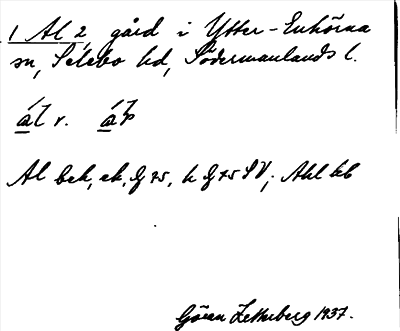 1 Al 2, gård i Ytter-Enhörna
sn, Selebo hd, Södermanlands l.
ál r. áɫ
Al bek, ek, Gg 75, k Gg 75 SV; Ahl kb
Göran Zetterberg 1937.